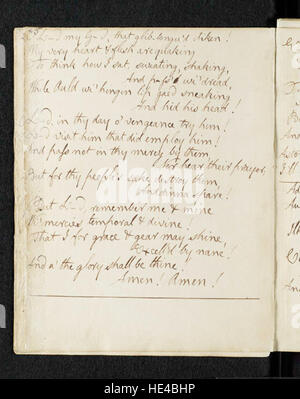 L—d my G—d, that glib-tongu'd Aiken!
My very heart & flesh are quaking
To think how I sat, sweating, shaking,
And p-ss'd wi' dread,
While Auld wi' hingin lip gaed sneaking
And hid his head!
L—d, in thy day o' vengeance try him!
L—d visit him that did employ him!
And pass not in thy mercy by them,
Nor hear their prayer;
But for thy people's sake destroy them,
And dinna spare!
But L—d, remember me & mine
Wi' mercies temporal & divine!
That I for grace & gear may shine,
Excell'd by nane!
And a' the glory shall be thine!
Amen! Amen!
alamy
alamy
HE4BHP